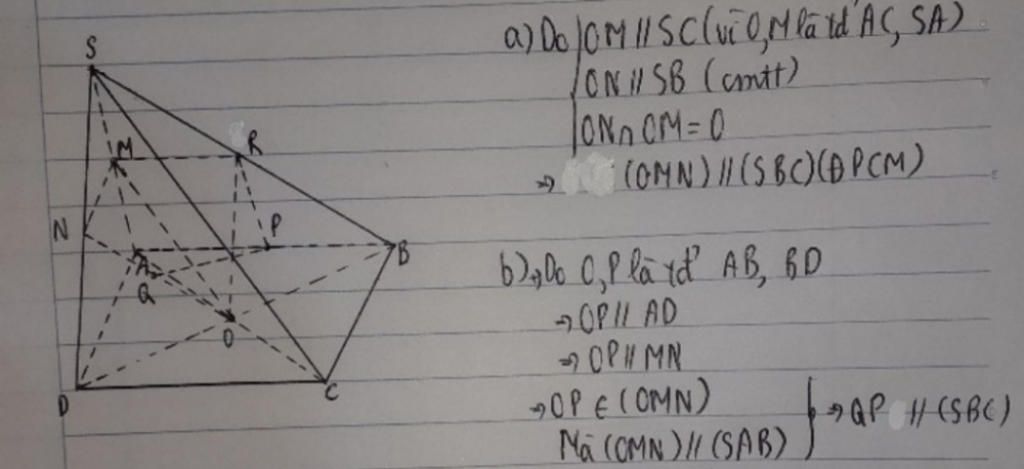 S
M
R
N
P
A
B
Q
O
D
C
a) Do OM // SC (vì O, M là tđ' AC, SA)
ON // SB (cmtt)
ON ∩ OM = O
→ (OMN) // (SBC) (ĐPCM)
b) → Do O, P là tđ' AB, BD
→ OP // AD
→ OP // MN
→ OP ∈ (OMN)
Mà (OMN) // (SAB) } → QP // (SBC)